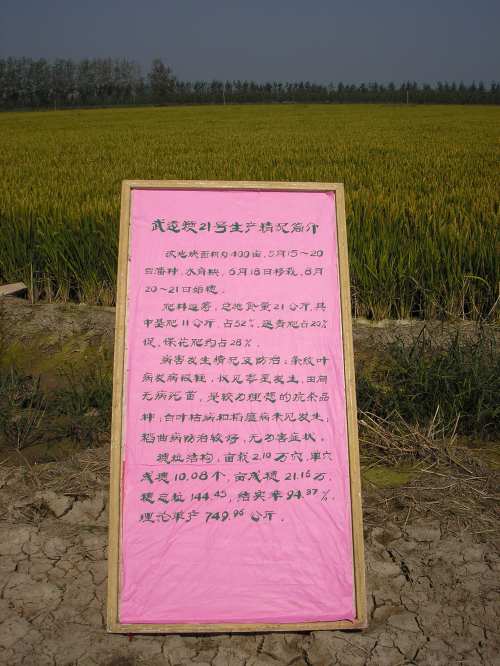 武运粳21号生产情况简介
该地块面积为400亩，5月15～20
日播种，水育秧，6月18日移栽，8月
20～21日始穗。
肥料运筹，总施氮量21公斤，其
中基肥11公斤，占52%，速责肥占20%
促、保花肥约占28%。
病害发生情况及防治：条纹叶
病发病较轻，仅见零星发生，田间
无病死苗，是较为理想的抗条品
种；白叶枯病和稻瘟病未见发生；
稻曲病防治较好，无为害症状。
穗粒结构，亩栽2.10万穴，单穴
成穗10.08个，亩成穗21.16万，
穗总粒144.45，结实率94.37%，
理论单产749.96公斤。